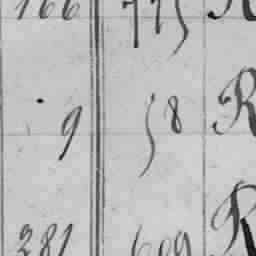 166 775 R
9 58 R
281 609 R